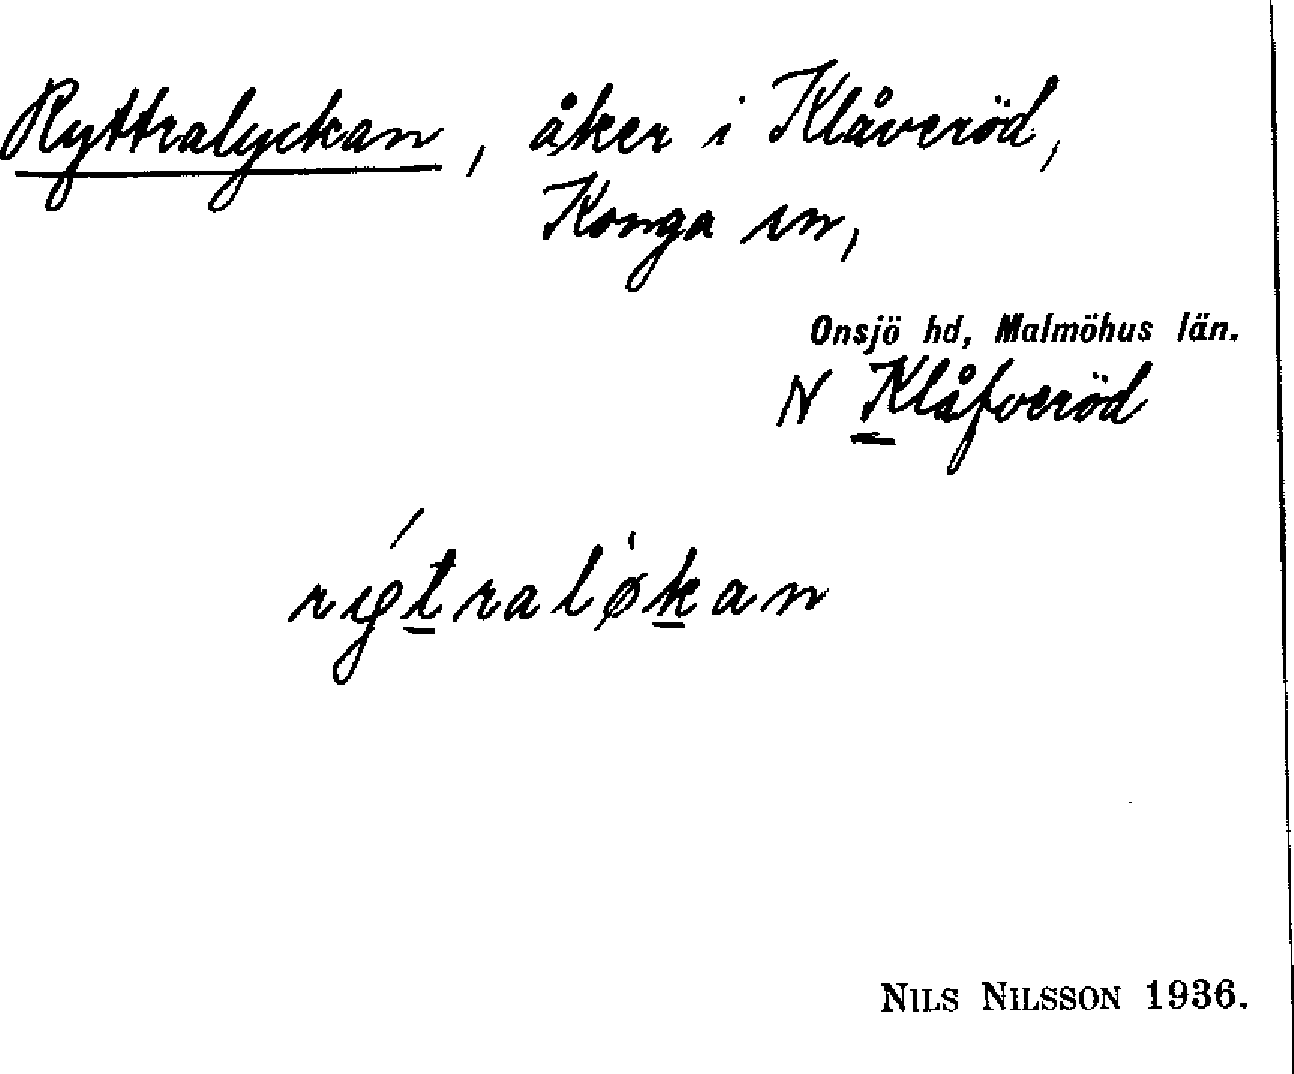 Ryttralyckan, åker i Klåveröd,
Konga sn,
Onsjö hd, Malmöhus län.
N Klåfveröd
NILS NILSSON 1936.